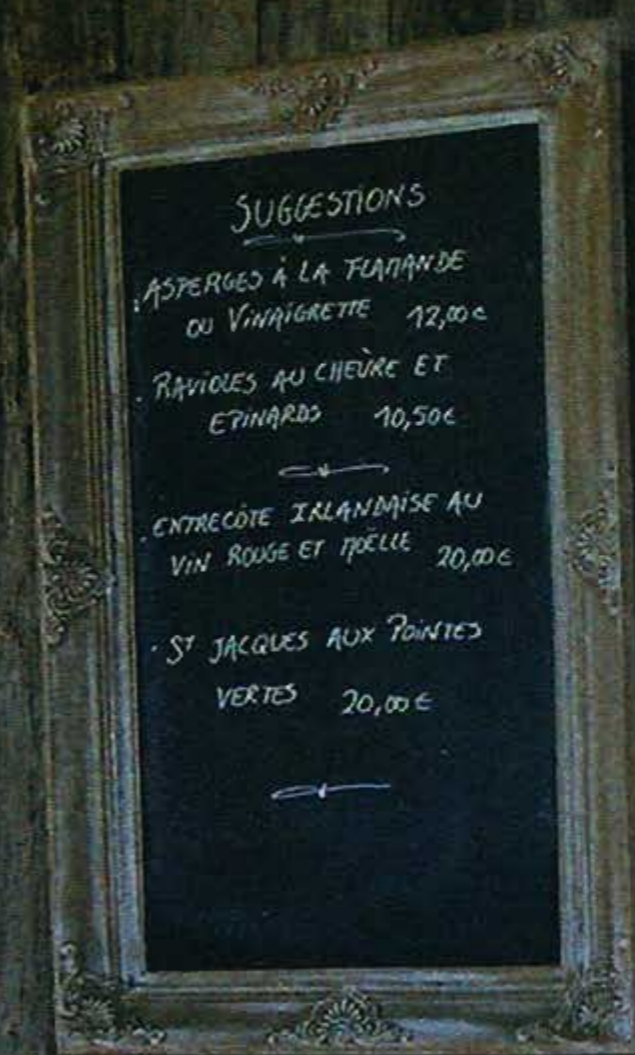 SUGGESTIONS
. ASPERGES À LA FLAMANDE
OU VINAIGRETTE 12,00€
. RAVIOLES AU CHEÛRE ET
EPINARDS 10,50€
. ENTRECÔTE IRLANDAISE AU
VIN ROUGE ET MOËLLE 20,00€
. ST JACQUES AUX POINTES
VERTES 20,00€